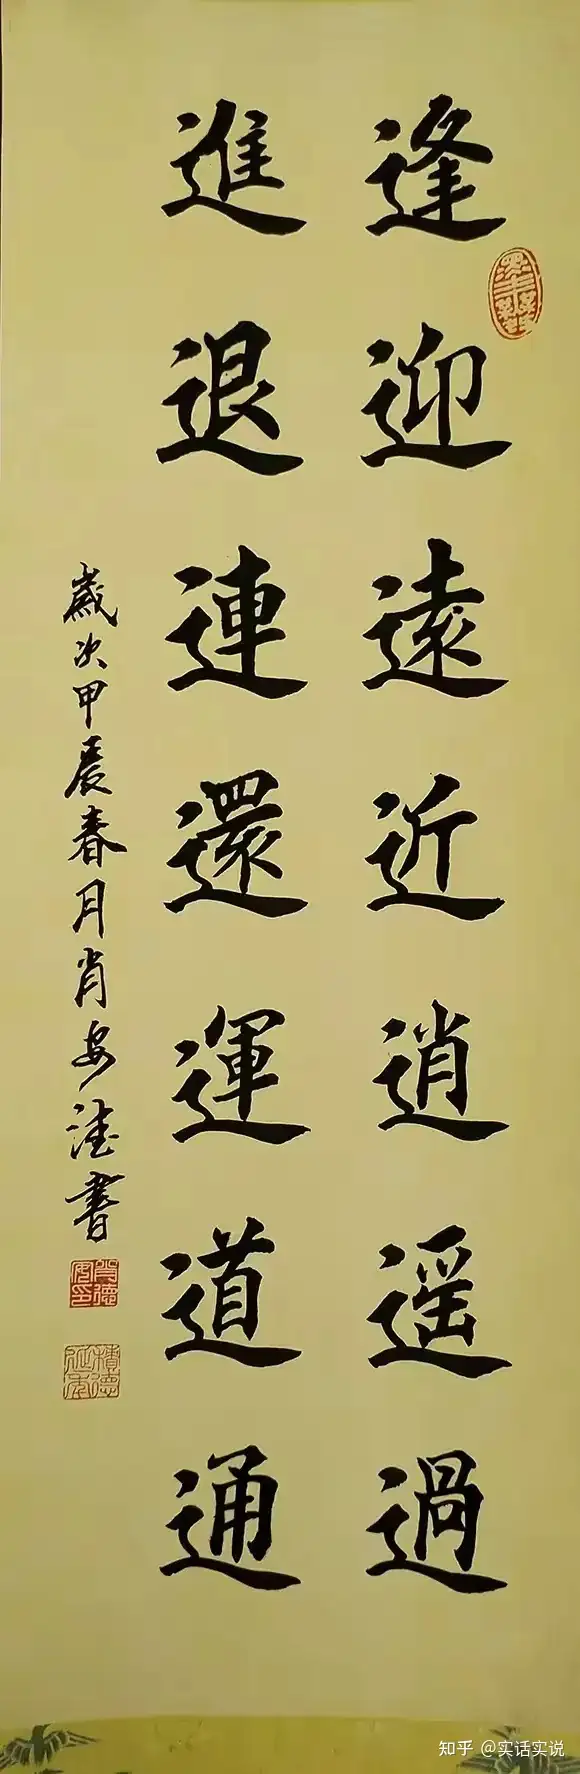 逢迎遠近逍遥過
進退連還運道通
歲次甲辰春月肖安德書
知乎 @实话实说